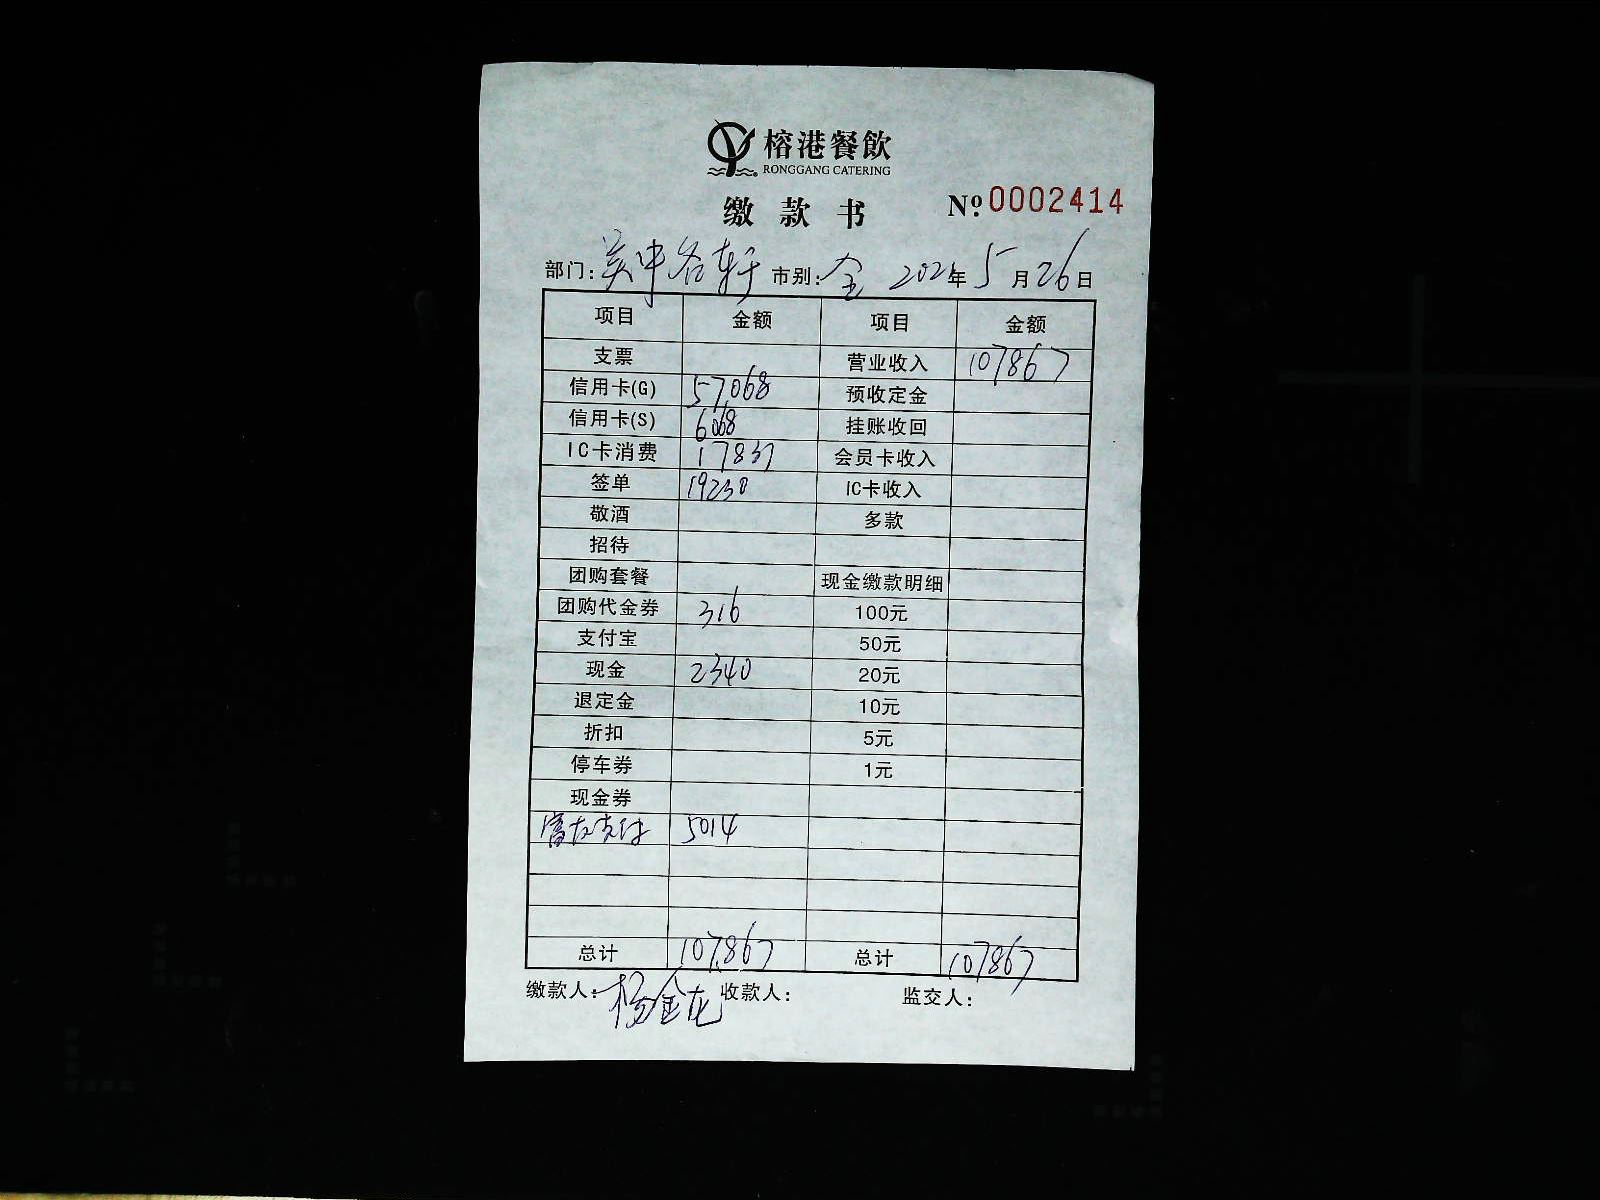 榕港餐飲
RONGGANG CATERING
缴款书 No.0002414
部门: 市别:全 202年5月26日
项目 金额 项目 金额
支票 营业收入 107867
信用卡(G) 57068 预收定金
信用卡(S) 6068 挂账收回
IC卡消费 17831 会员卡收入
签单 19230 IC卡收入
敬酒 多款
招待
团购套餐 现金缴款明细
团购代金券 316 100元
支付宝 50元
现金 2340 20元
退定金 10元
折扣 5元
停车券 1元
现金券
富友支付 5014
总计 107867 总计 107867
缴款人:杨金龙 收款人: 监交人: